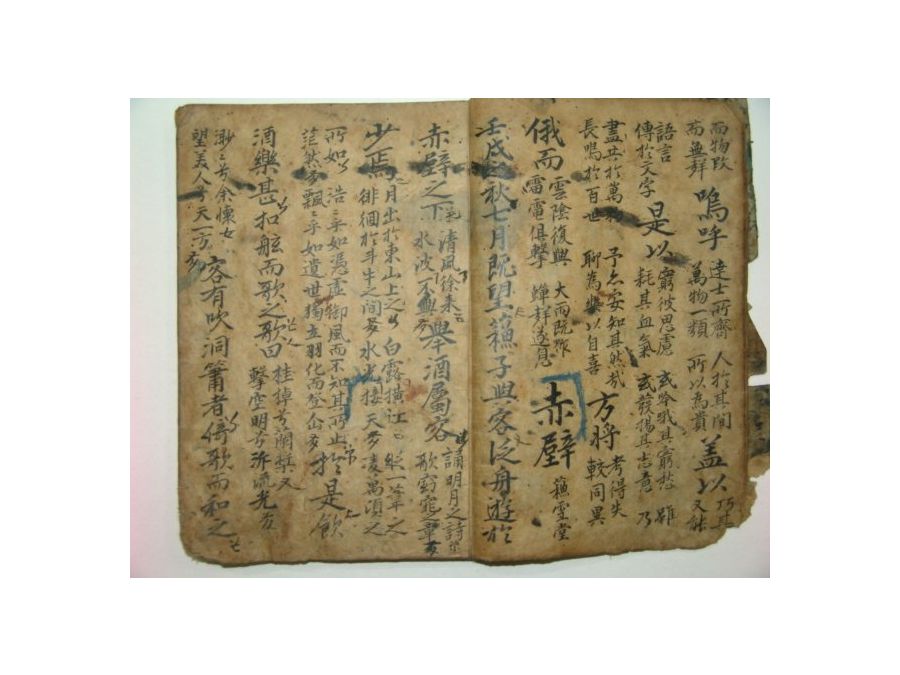 而物改
而無聲
嗚呼
達士所齊
萬物一類
人於其間
所以為貴
盖以
巧其
又能
語言
傳於文字
是以
窮彼思慮
耗其血氣
或吟哦其窮愁 雖
或發揚其志意 乃
盡其於萬物
長鳴於百世
予亦安知其然哉
聊為樂以自喜
方將
考得失
較同異
俄而
雲陰復興
雷電俱擊
大雨既作
蟬聲遂息
赤壁
蘓雪堂
壬戌之秋七月既望蘓子與客泛舟遊於
赤壁之下
清風徐来
水波不興
舉酒屬客
誦明月之詩
歌窈窕之章
少焉
月出於東山上之
徘徊於斗牛之間
白露横江
水光接天
縱一葦之
凌萬頃之
所如
茫然
浩浩乎如憑虛御風而不知其所止
飄飄乎如遺世獨立羽化而登仙
於是飮
酒樂甚扣舷而歌之歌曰
桂棹兮蘭槳
擊空明兮泝流光
渺渺兮余懷
望美人兮天一方
客有吹洞簫者倚歌而和之